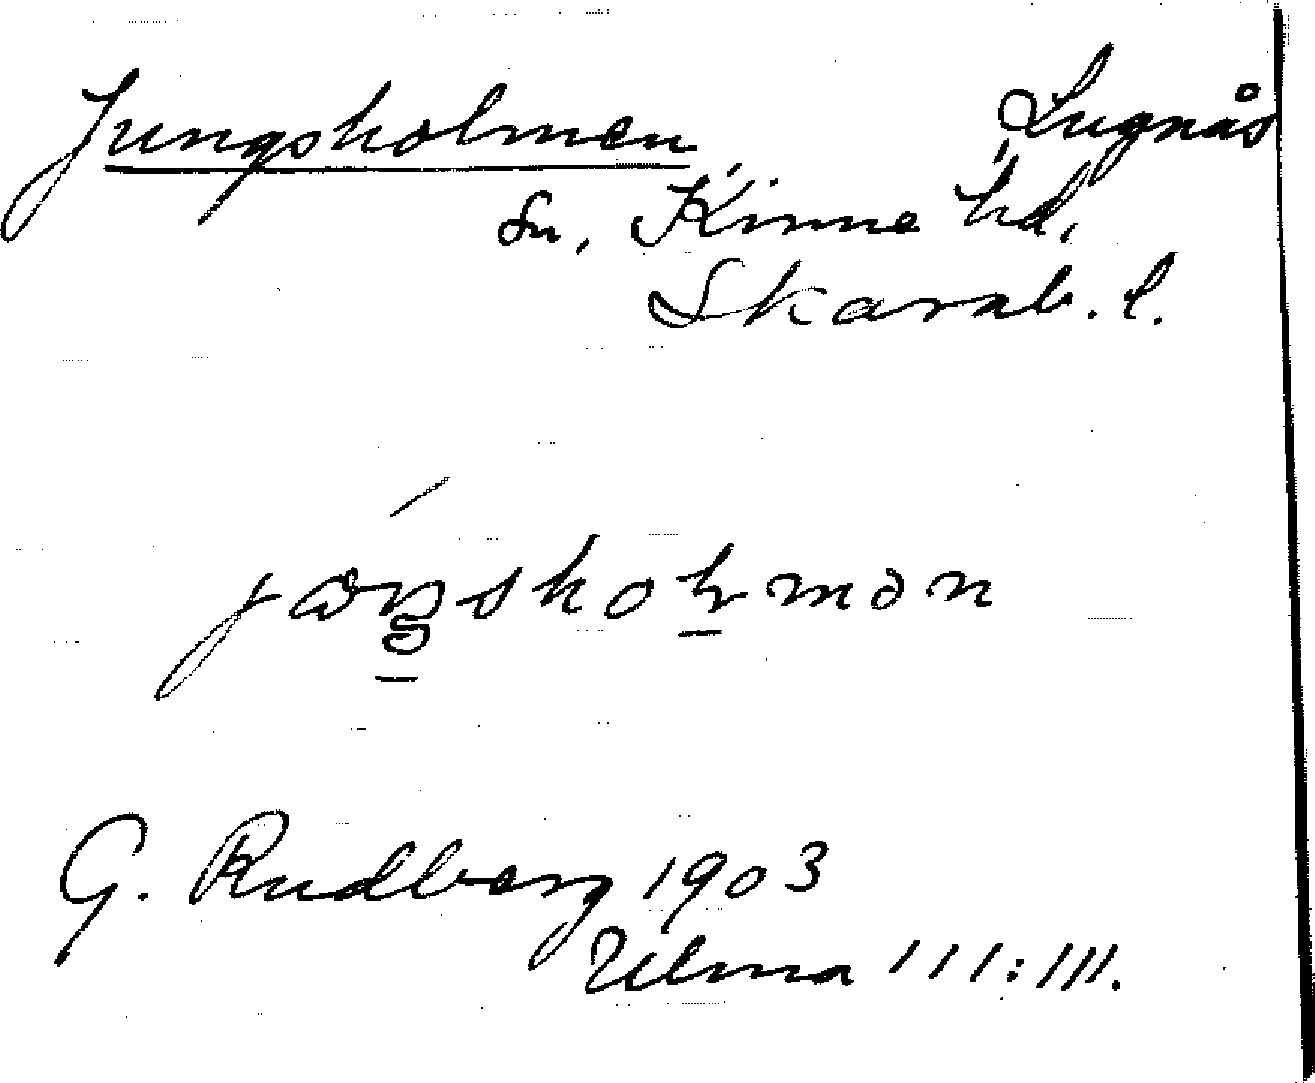 Jungsholmen, Lugnås
sn, Kinne hd,
Skarab. l.
G. Rudberg 1903
Ulma 111:111.